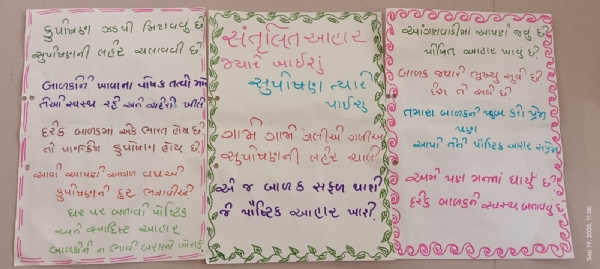 કુપોષણ ઝડપી મિટાવવુ છે
સુપોષણની લહેર ચલાવવી છે
બાળકોને ખાવાના પોષક તત્વો મળે
તેઓ સ્વસ્થ રહે અને
દરેક બાળકમાં એક ભારત હોય છે
તો કુપોષણ હોય છે
આવો આપણી આગળ વધીએ
કુપોષણને દુર ભગાવીએ
ઘર પર બનાવો પોષ્ટિક
અને સ્વાદિષ્ટ આહાર
બાળકોને ન ભાવે બહારનો
સંતુલિત આહાર
જ્યારે ખાઈશું
સુપોષણ ત્યારે
પાઈશુ
ગામે ગામે ગલીએ ગલીએ
સુપોષણની લહેર ચાલી
એ જ બાળક સફળ થાશે
જે પૌષ્ટિક આહાર ખાશે.
આંગણવાડીમાં આપણે જવુ છે
પોષિત આહાર ખાવુ છે.
બાળક જ્યારે ભુખ્યુ સુવે છે
દેશ તો રુવે છે
તમારા બાળકને ખુબ કરો પ્રેમ
પણ
આપો તેને પૌષ્ટિક આહાર
અમે પણ મનમાં ધાર્યું છે
દરેક બાળકને સ્વસ્થ બનાવવુ છે
Sep 19, 2025, 11:00